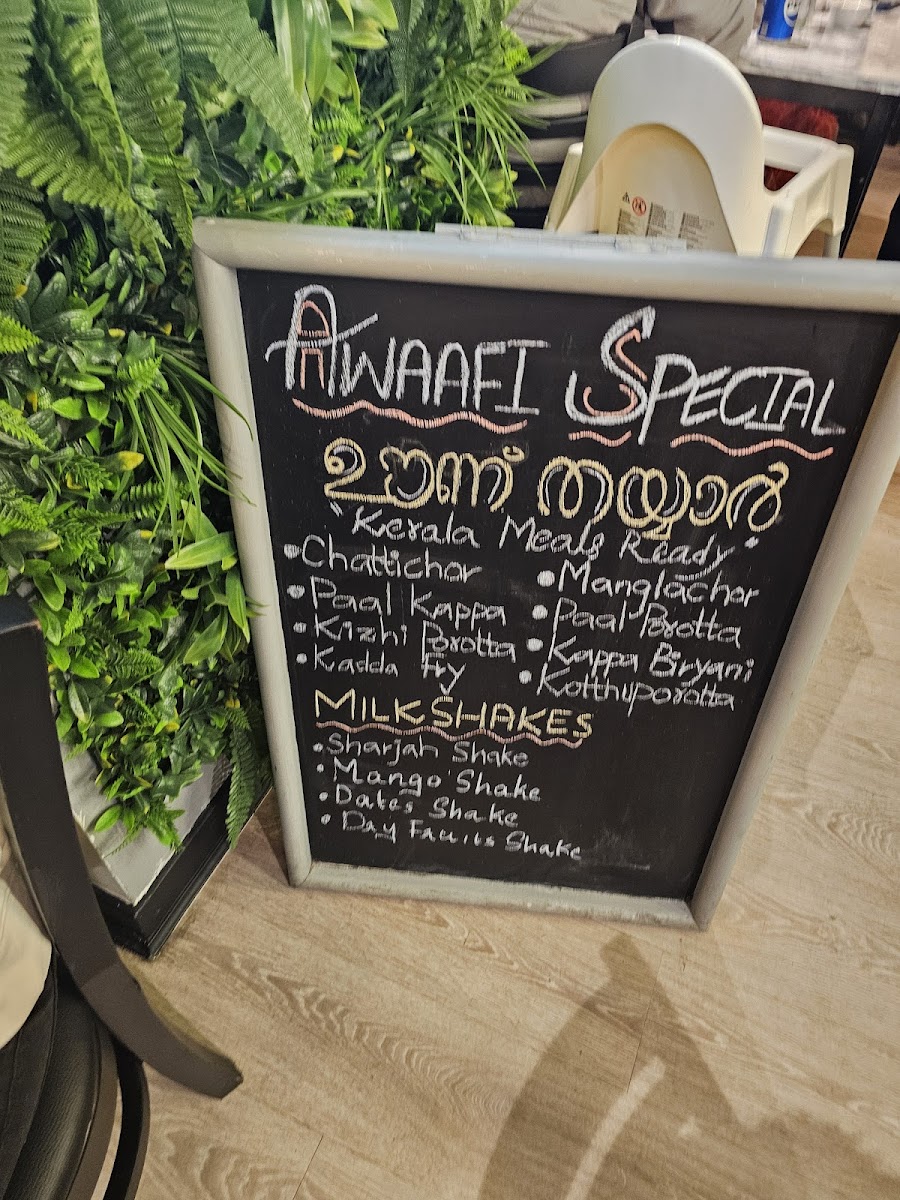 Alwaafi Special
ഊണ് തയ്യാർ
"Kerala Meals Ready"
• Chattichor
• Paal Kappa
• Kizhi Porotta
• Kadda Fry
• Manglachor
• Paal Porotta
• Kappa Biryani
• Kotthuporotta
MILKSHAKES
• Sharjah Shake
• Mango Shake
• Dates Shake
• Day Fruits Shake